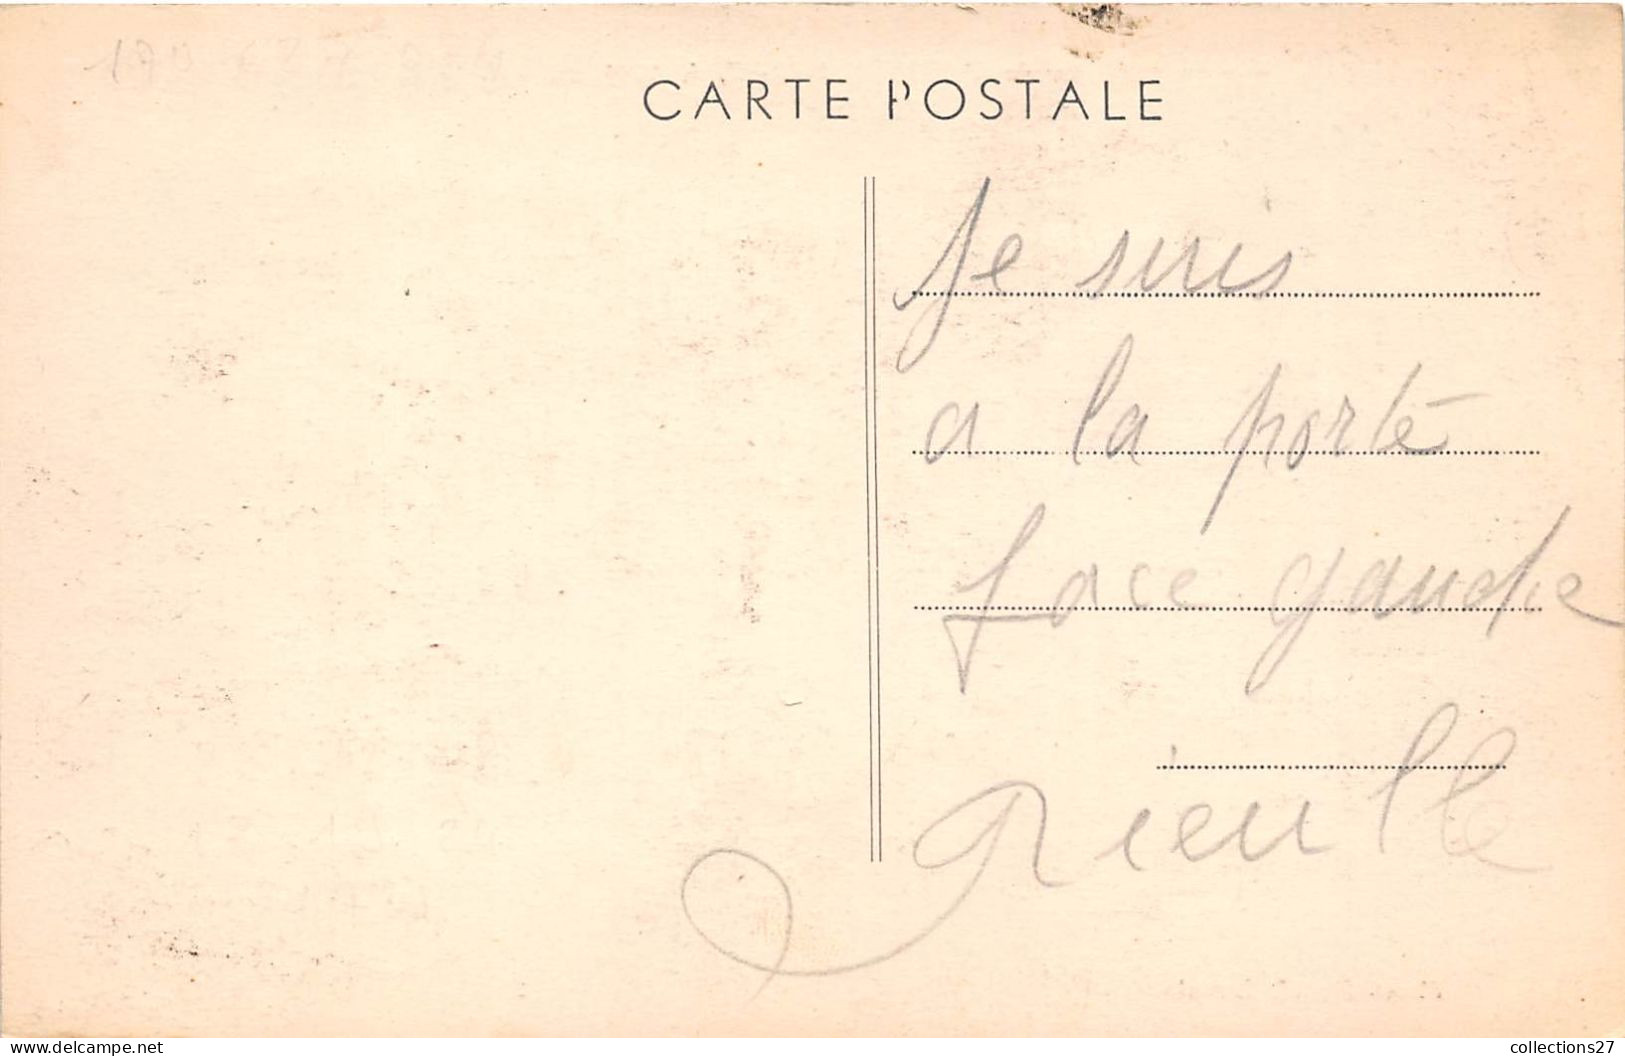 CARTE POSTALE
Je suis
a la porte
face gauche
delcampe.net
collections27